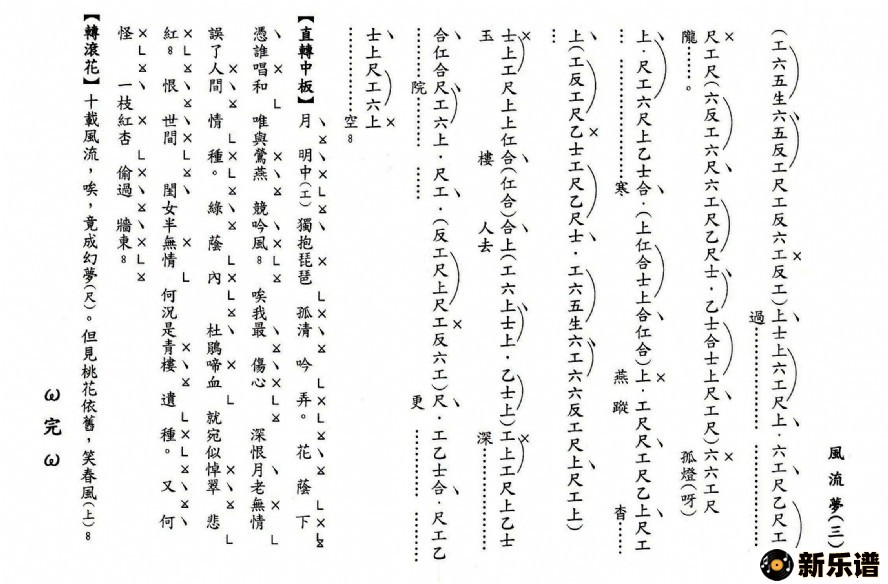 風流夢(三)
(工六五生六五反工尺工反六工反工)上士上六工尺上．六工尺乙尺工
過
尺工尺(六反工六尺六工尺乙尺士．乙士合士上尺工尺)六六工尺
隴……。 孤燈(呀)
上．尺工六尺上乙士合．(上仁合士上合仁合)上．工尺尺工尺乙上尺工
寒 燕蹤 杳
上(工反工尺乙士工尺乙尺士．工六五生六工六六反工尺上尺工上)
士上工尺上上仁合(仁合)合上(工六上士上．乙士上)工上工尺上乙士
玉 樓 人去 深
合仁合尺工六上．尺工．(反工尺上尺工反六工)尺．工乙士合．尺工乙
院 更
士上尺工六上
空。
【直轉中板】月 明中(工)獨抱琵琶 孤清 吟 弄。 花 蔭 下
憑誰唱和 唯與鶯燕 競吟風。 唉我最 傷心 深恨月老無情
誤了人間 情 種。 綠 蔭 內 杜鵑啼血 就宛似悼翠 悲
紅。 恨 世間 閨女半無情 何況是青樓 遺 種。 又 何
怪 一枝紅杏 偷過 牆東。
【轉滾花】十載風流，唉，竟成幻夢(尺)。但見桃花依舊，笑春風(上)。
ω完ω
新乐谱